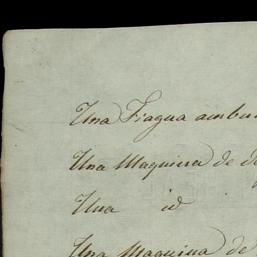 Una Fragua ambu
Una Maquina de d
Una id
Una Maquina de